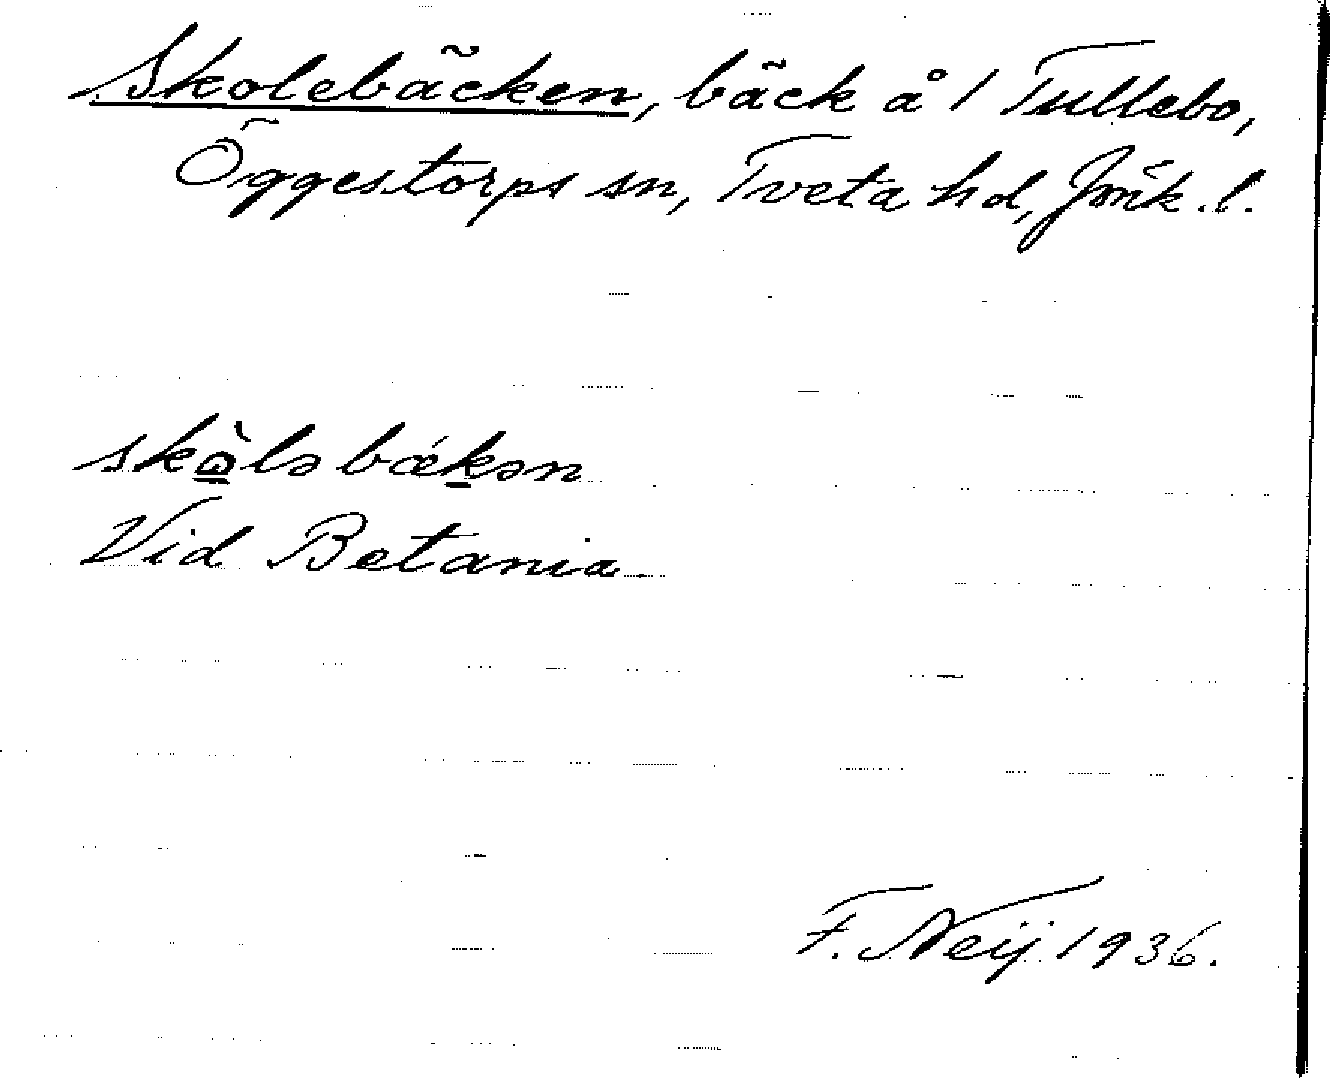 Skolebäcken, bäck å 1 Tullebo,
Öggestorps sn, Tveta hd, Jönk. l.
skòlə bǽkən
Vid Betania
F. Neij 1936.